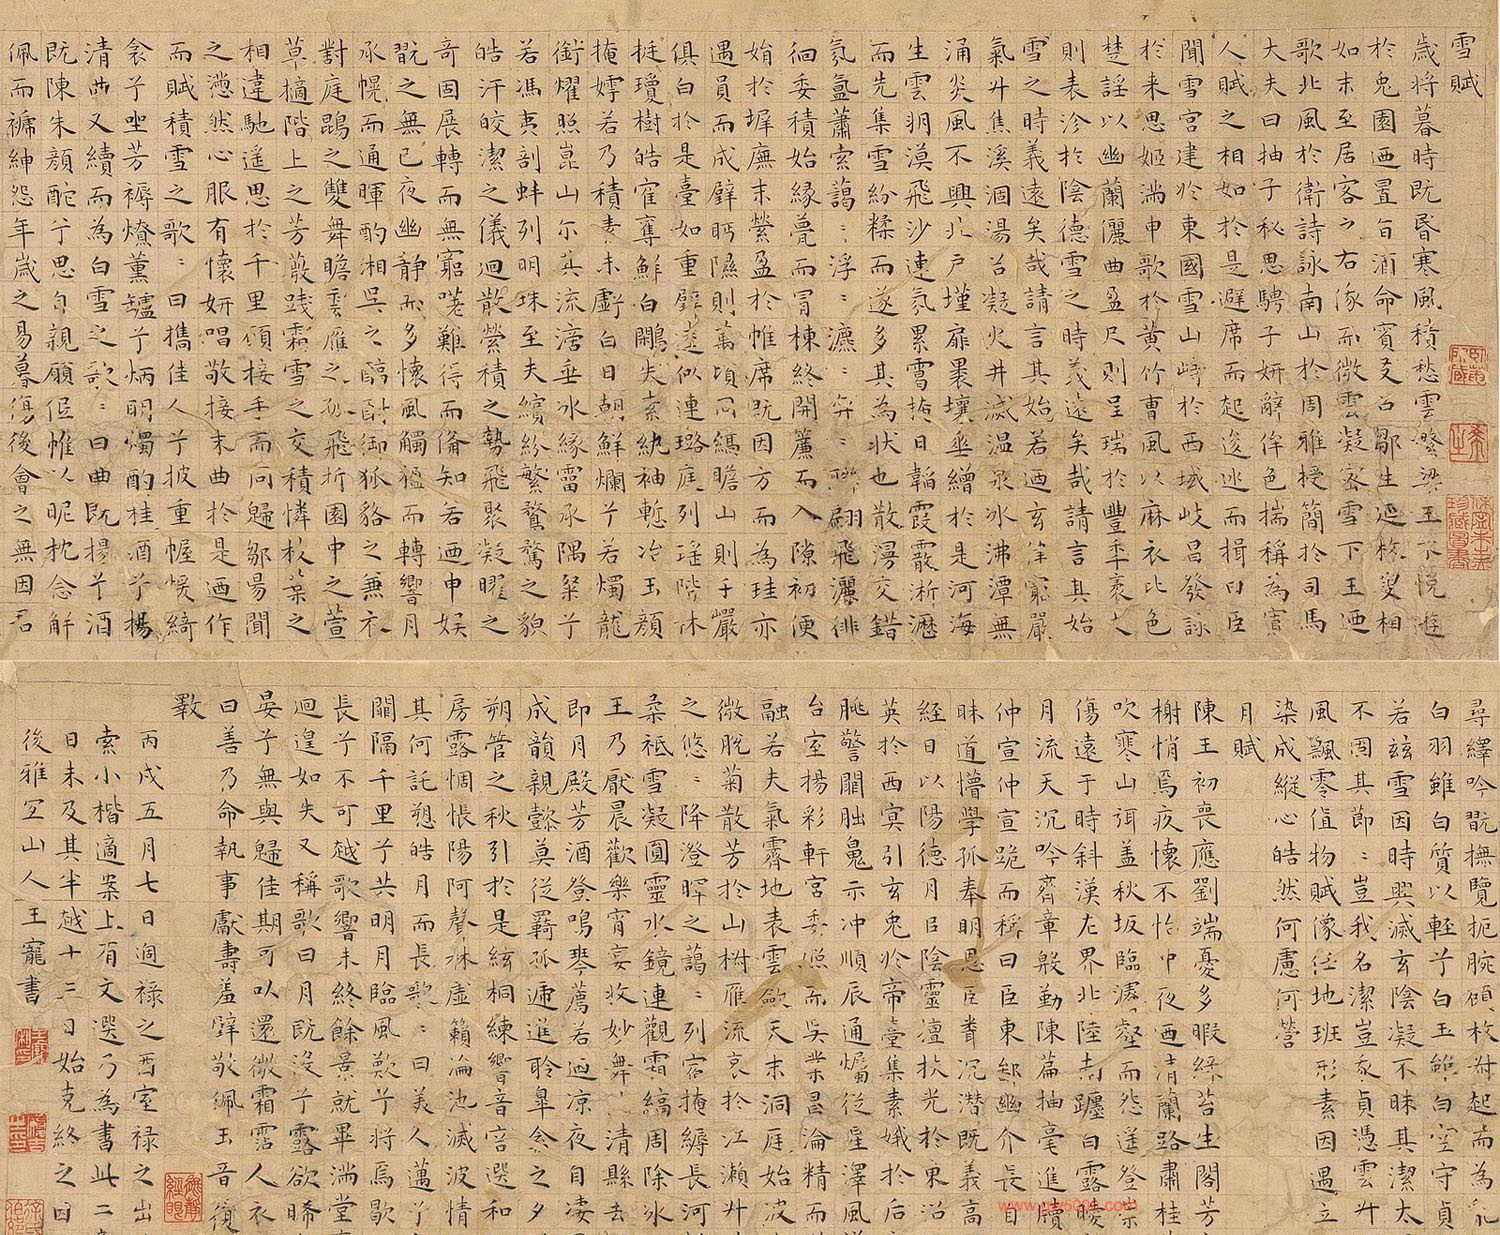 雪賦
歲將暮時既昏寒風積愁雲繁梁王不悅遊
於兔園迺置旨酒命賓友召鄒生延枚叟相
如末至居客之右俄而微雲凝密雪下王迺
歌北風於衛詩詠南山於周雅授簡於司馬
大夫曰抽子秘思騁子妍辭侔色揣稱為寡
人賦之相如於是避席而起逡巡而揖曰臣
聞雪宮建於東國雪山峙於西域岐昌發詠
於來思姬滿申歌於黃竹曹風以麻衣比色
楚謠以幽蘭儷曲盈尺則呈瑞於豐年袤丈
則表沴於陰德雪之時義遠矣哉請言其始
雪之時義遠矣哉請言其始若迺玄律窮嚴
氣升焦溪涸湯谷凝火井滅溫泉冰沸潭無
涌炎風不興北戶墐扉裸壤垂繒於是河海
生雲朔漠飛沙連氛累霭掩日韜霞霰淅瀝
而先集雪紛糅而遂多其為狀也散漫交錯
氛氳蕭索藹〻浮〻瀌〻弈〻聯翩飛灑徘
徊委積始緣甍而冒棟終開簾而入隙初便
娟於墀廡末縈盈於帷席既因方而為珪亦
遇員而成璧眄隰則萬頃同縞瞻山則千巖
俱白於是臺如重璧逵似連璐庭列瑤階林
挺瓊樹皓鶴奪鮮白鷴失素紈袖慙冶玉顏
掩嫮若乃積素未虧白日朝鮮爛兮若燭龍
銜燿照崑山尔其流滴垂冰緣霤承隅粲兮
若馮夷剖蚌列明珠至夫繽紛繁騖之貌
皓汗皎潔之儀迴散縈積之勢飛聚凝曜之
奇固展轉而無窮嗟難得而備知若迺申娛
翫之無已夜幽靜而多懷風觸楹而轉響月
承幌而通暉酌湘吳之醇酎御狐貉之兼衣
對庭鵾之雙舞瞻雲雁之孤飛折園中之萱
草摘階上之芳薇踐霜雪之交積憐枝葉之
相違馳遙思於千里願接手而同歸鄒昜聞
之懣然心服有懷妍唱敬接末曲於是迺作
而賦積雪之歌〻曰攜佳人兮披重幄援綺
衾兮坐芳褥燎薰罏兮炳明燭酌桂酒兮揚
清曲又續而為白雪之歌〻曰曲既揚兮酒
既陳朱顏酡兮思自親願低帷以昵枕念解
佩而褫紳怨年歲之易暮傷後會之無因君
尋繹吟翫撫覽扼腕顧枚叔起而為亂
白羽雖白質以輕兮白玉雖白空守貞
若茲雪因時興滅玄陰凝不昧其潔太
不固其節〻豈我名潔豈我貞憑雲升
風飄零值物賦像任地班形素因遇立
染成縱心皓然何慮何營
月賦
陳王初喪應劉端憂多暇綠苔生閣芳
榭悄焉疚懷不怡中夜迺清蘭路肅桂
吹寒山弭盖秋坂臨濬壑而怨遥登崇
傷遠于時斜漢左界北陸南躔白露曖
月流天沉吟齊章殷勤陳篇抽毫進牘
仲宣仲宣跪而稱曰臣東鄙幽介長自
昧道懵學孤奉明恩臣聞沉潛既義高
經日以陽德月以陰靈擅扶光於東沼
英於西冥引玄兔於帝臺集素娥於后
朓警闕朏魄示冲順辰通燭從星澤風
台室揚彩軒宮委照而吳業昌淪精而
融若夫氣霽地表雲斂天末洞庭始波
微脫菊散芳於山椒雁流哀於江瀨升
之悠〻降澄暉之藹〻列宿掩縟長河
柔祇雪凝圓靈水鏡連觀霜縞周除冰
王乃厭晨歡樂宵宴收妙舞清縣去
即月殿芳酒登鳴琴薦若迺凉夜自凄
成韻親懿莫從羇孤遞進聆皐禽之夕
朔管之秋引於是絃桐練響音容選和
房露惆悵陽阿聲林虛籟淪池滅波情
其何託愬皓月而長歌〻曰美人邁兮
闕隔千里兮共明月臨風歎兮將焉歇
長兮不可越歌響未終餘景就畢滿堂
迴遑如失又稱歌曰月既沒兮露欲晞
晏兮無與歸佳期可以還微霜霑人衣
曰善乃命執事獻壽羞璧敬佩玉音復
斁
丙戌五月七日過祿之西室祿之出
索小楷適案上有文選乃為書此二
日未及其半越十三日始克終之因
後雅宜山人王寵書
www.gw5000.com